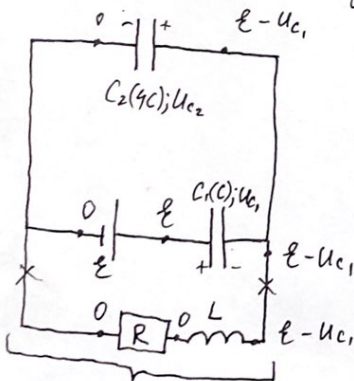 0 - + ℰ-U_C₁
C₂(4C);U_C₂
C₁(C);U_C₁
0 ℰ
ℰ + - ℰ-U_C₁
0 R 0 L ℰ-U_C₁